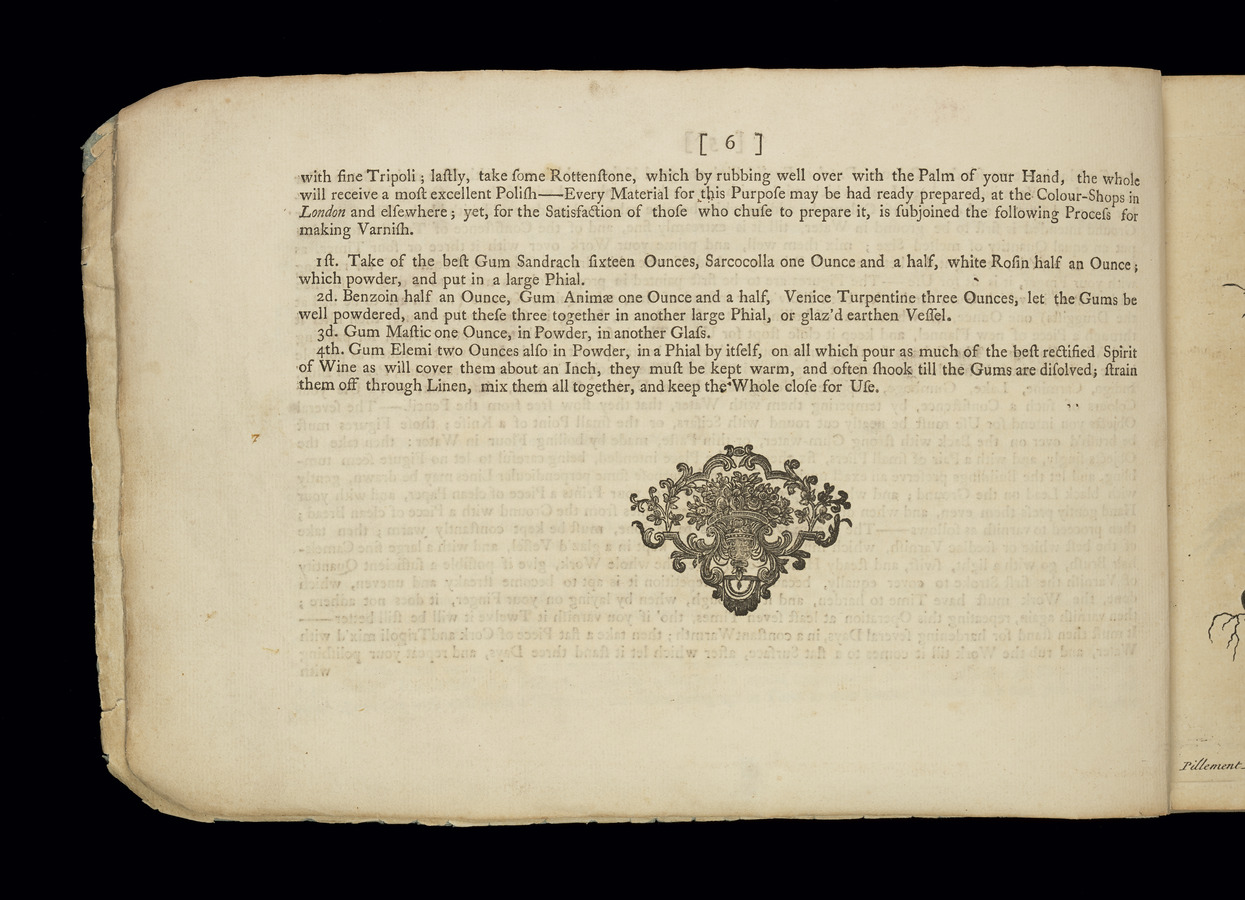 [ 6 ]
with fine Tripoli ; laſtly, take ſome Rottenſtone, which by rubbing well over with the Palm of your Hand, the whole
will receive a moſt excellent Poliſh——Every Material for this Purpoſe may be had ready prepared, at the Colour-Shops in
London and elſewhere ; yet, for the Satisfaction of thoſe who chuſe to prepare it, is ſubjoined the following Proceſs for
making Varniſh.
1ſt. Take of the beſt Gum Sandrach ſixteen Ounces, Sarcocolla one Ounce and a half, white Roſin half an Ounce ;
which powder, and put in a large Phial.
2d. Benzoin half an Ounce, Gum Animæ one Ounce and a half, Venice Turpentine three Ounces, let the Gums be
well powdered, and put theſe three together in another large Phial, or glaz'd earthen Veſſel.
3d. Gum Maſtic one Ounce, in Powder, in another Glaſs.
4th. Gum Elemi two Ounces alſo in Powder, in a Phial by itſelf, on all which pour as much of the beſt rectified Spirit
of Wine as will cover them about an Inch, they muſt be kept warm, and often ſhook till the Gums are diſolved; ſtrain
them off through Linen, mix them all together, and keep the Whole cloſe for Uſe.
Pillement